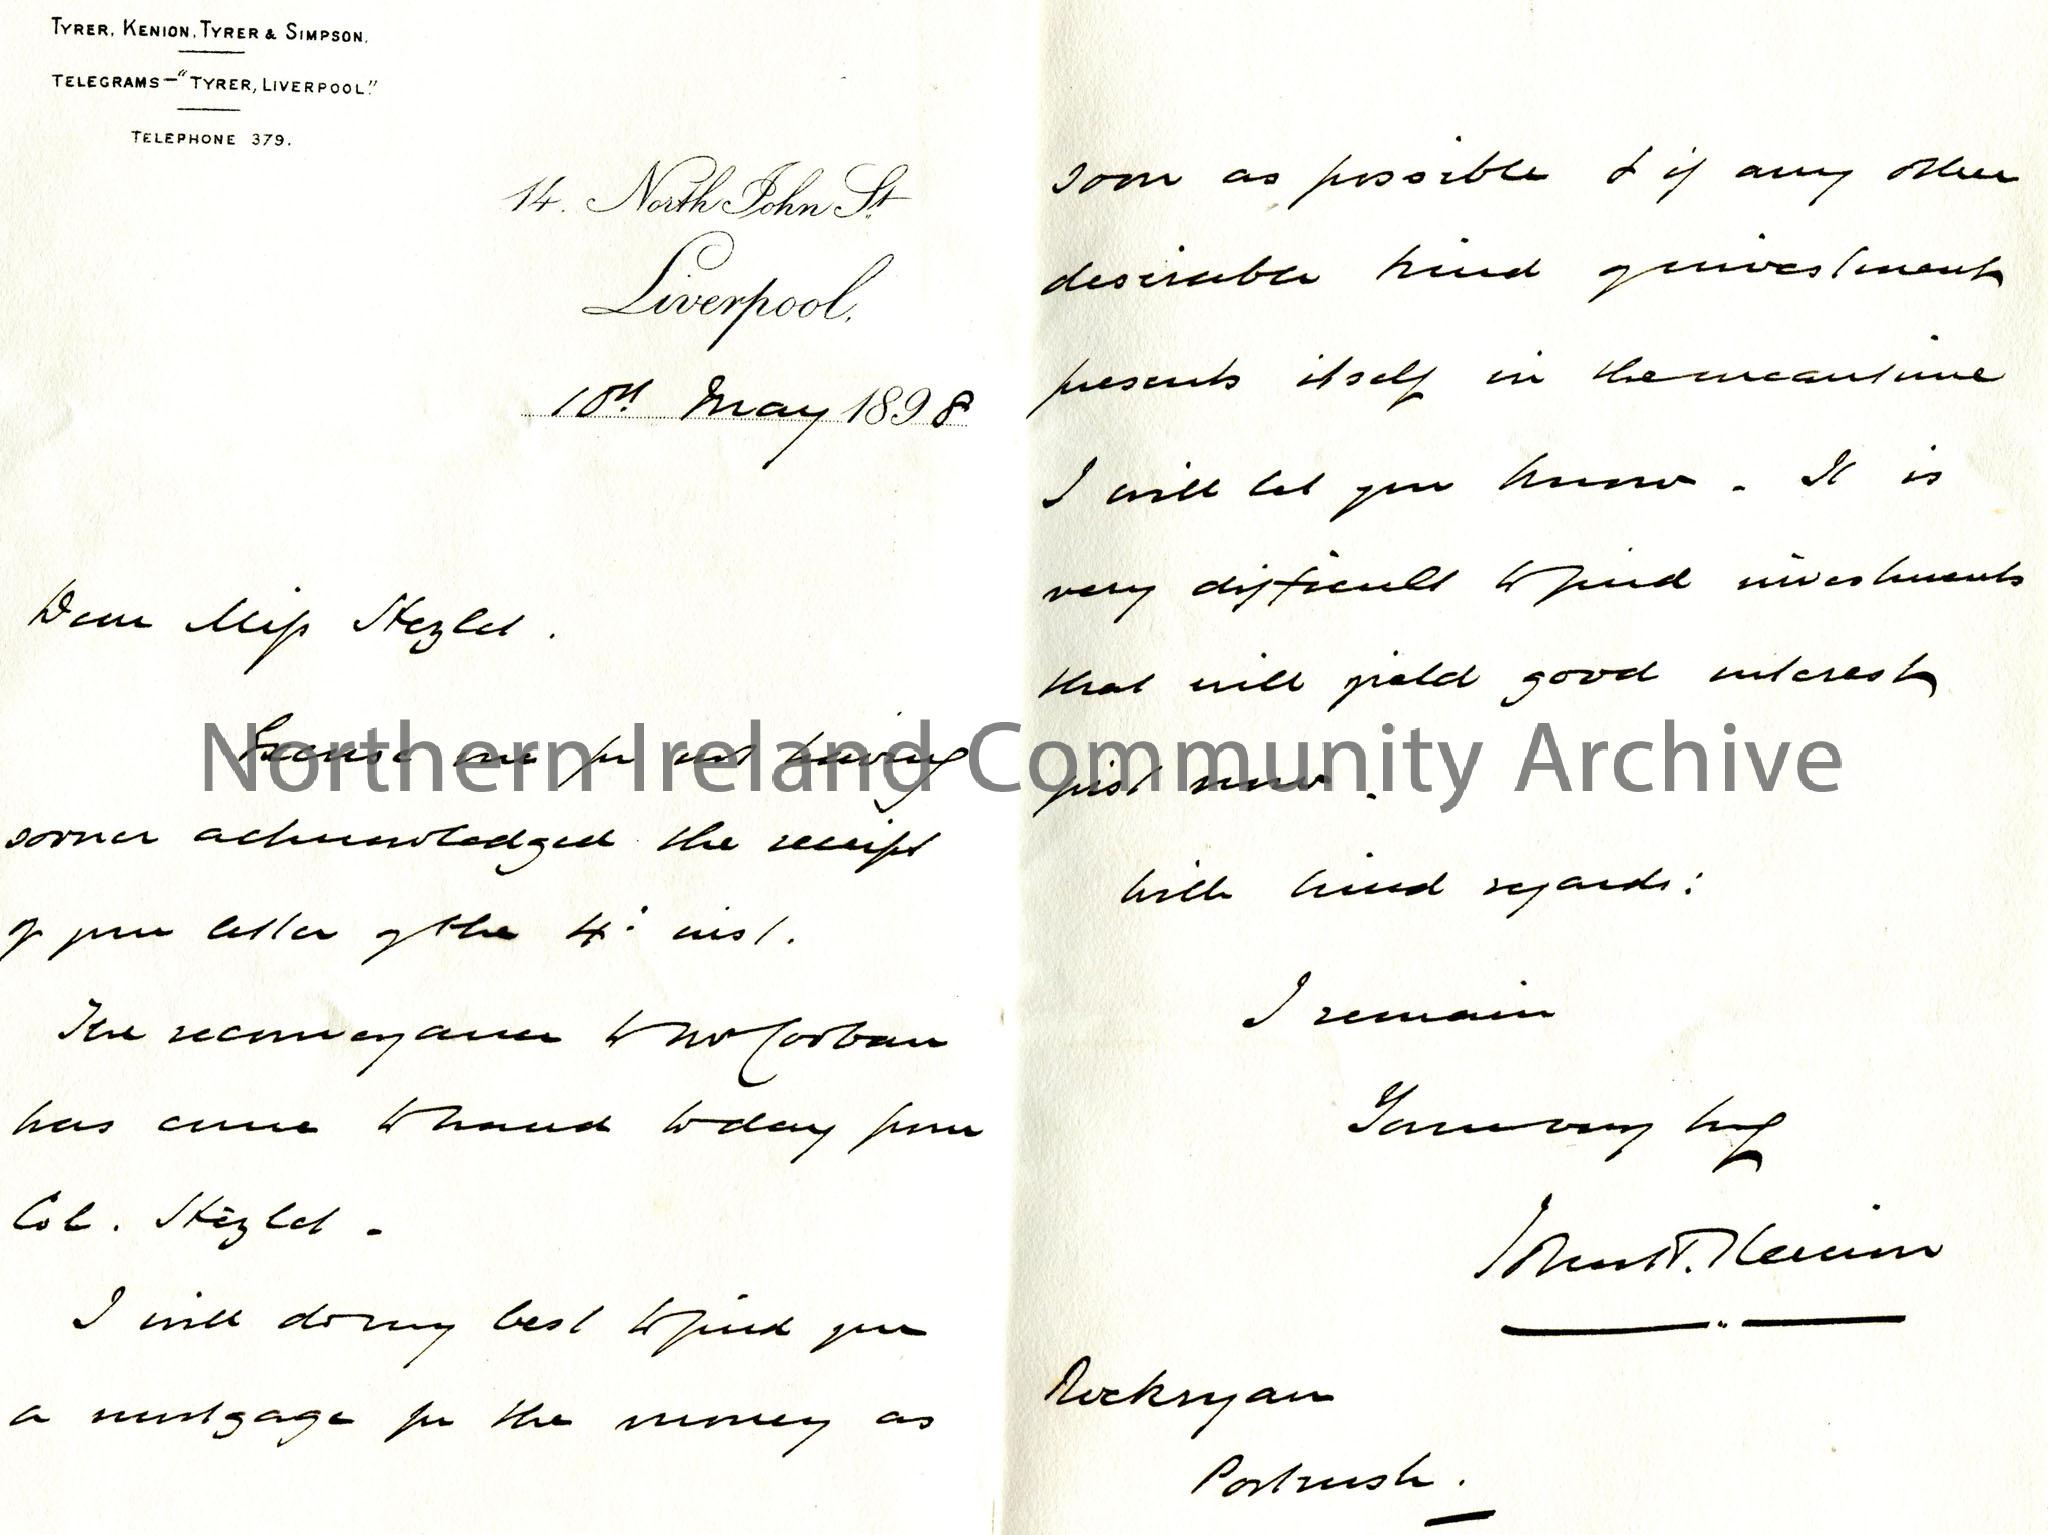 TYRER, KENION, TYRER & SIMPSON.
TELEGRAMS—"TYRER, LIVERPOOL."
TELEPHONE 379.
14. North John St.
Liverpool.
10th May 1898
Dear Miss Hezlet.
Excuse me for not having
sooner acknowledged the receipt
of your letter of the 4: inst.
The reconveyance to Mr Corban
has come to hand today from
Col. Hezlet.
I will do my best to find you
a mortgage for the money as
soon as possible & if any other
desirable kind of investment
presents itself in the meantime
I will let you know. It is
very difficult to find investments
that will yield good interest
just now.
With kind regards:
I remain
Yours very truly
John T. Kenion
Rockryan
Portrush.
Northern Ireland Community Archive